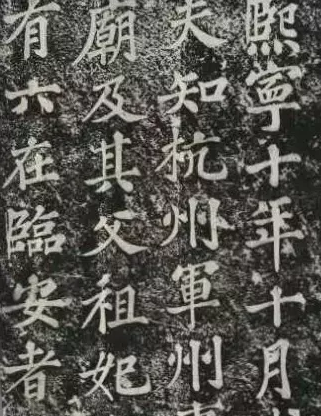 熙寧十年十月
夫知杭州軍州
廟及其父祖妃
有六在臨安者